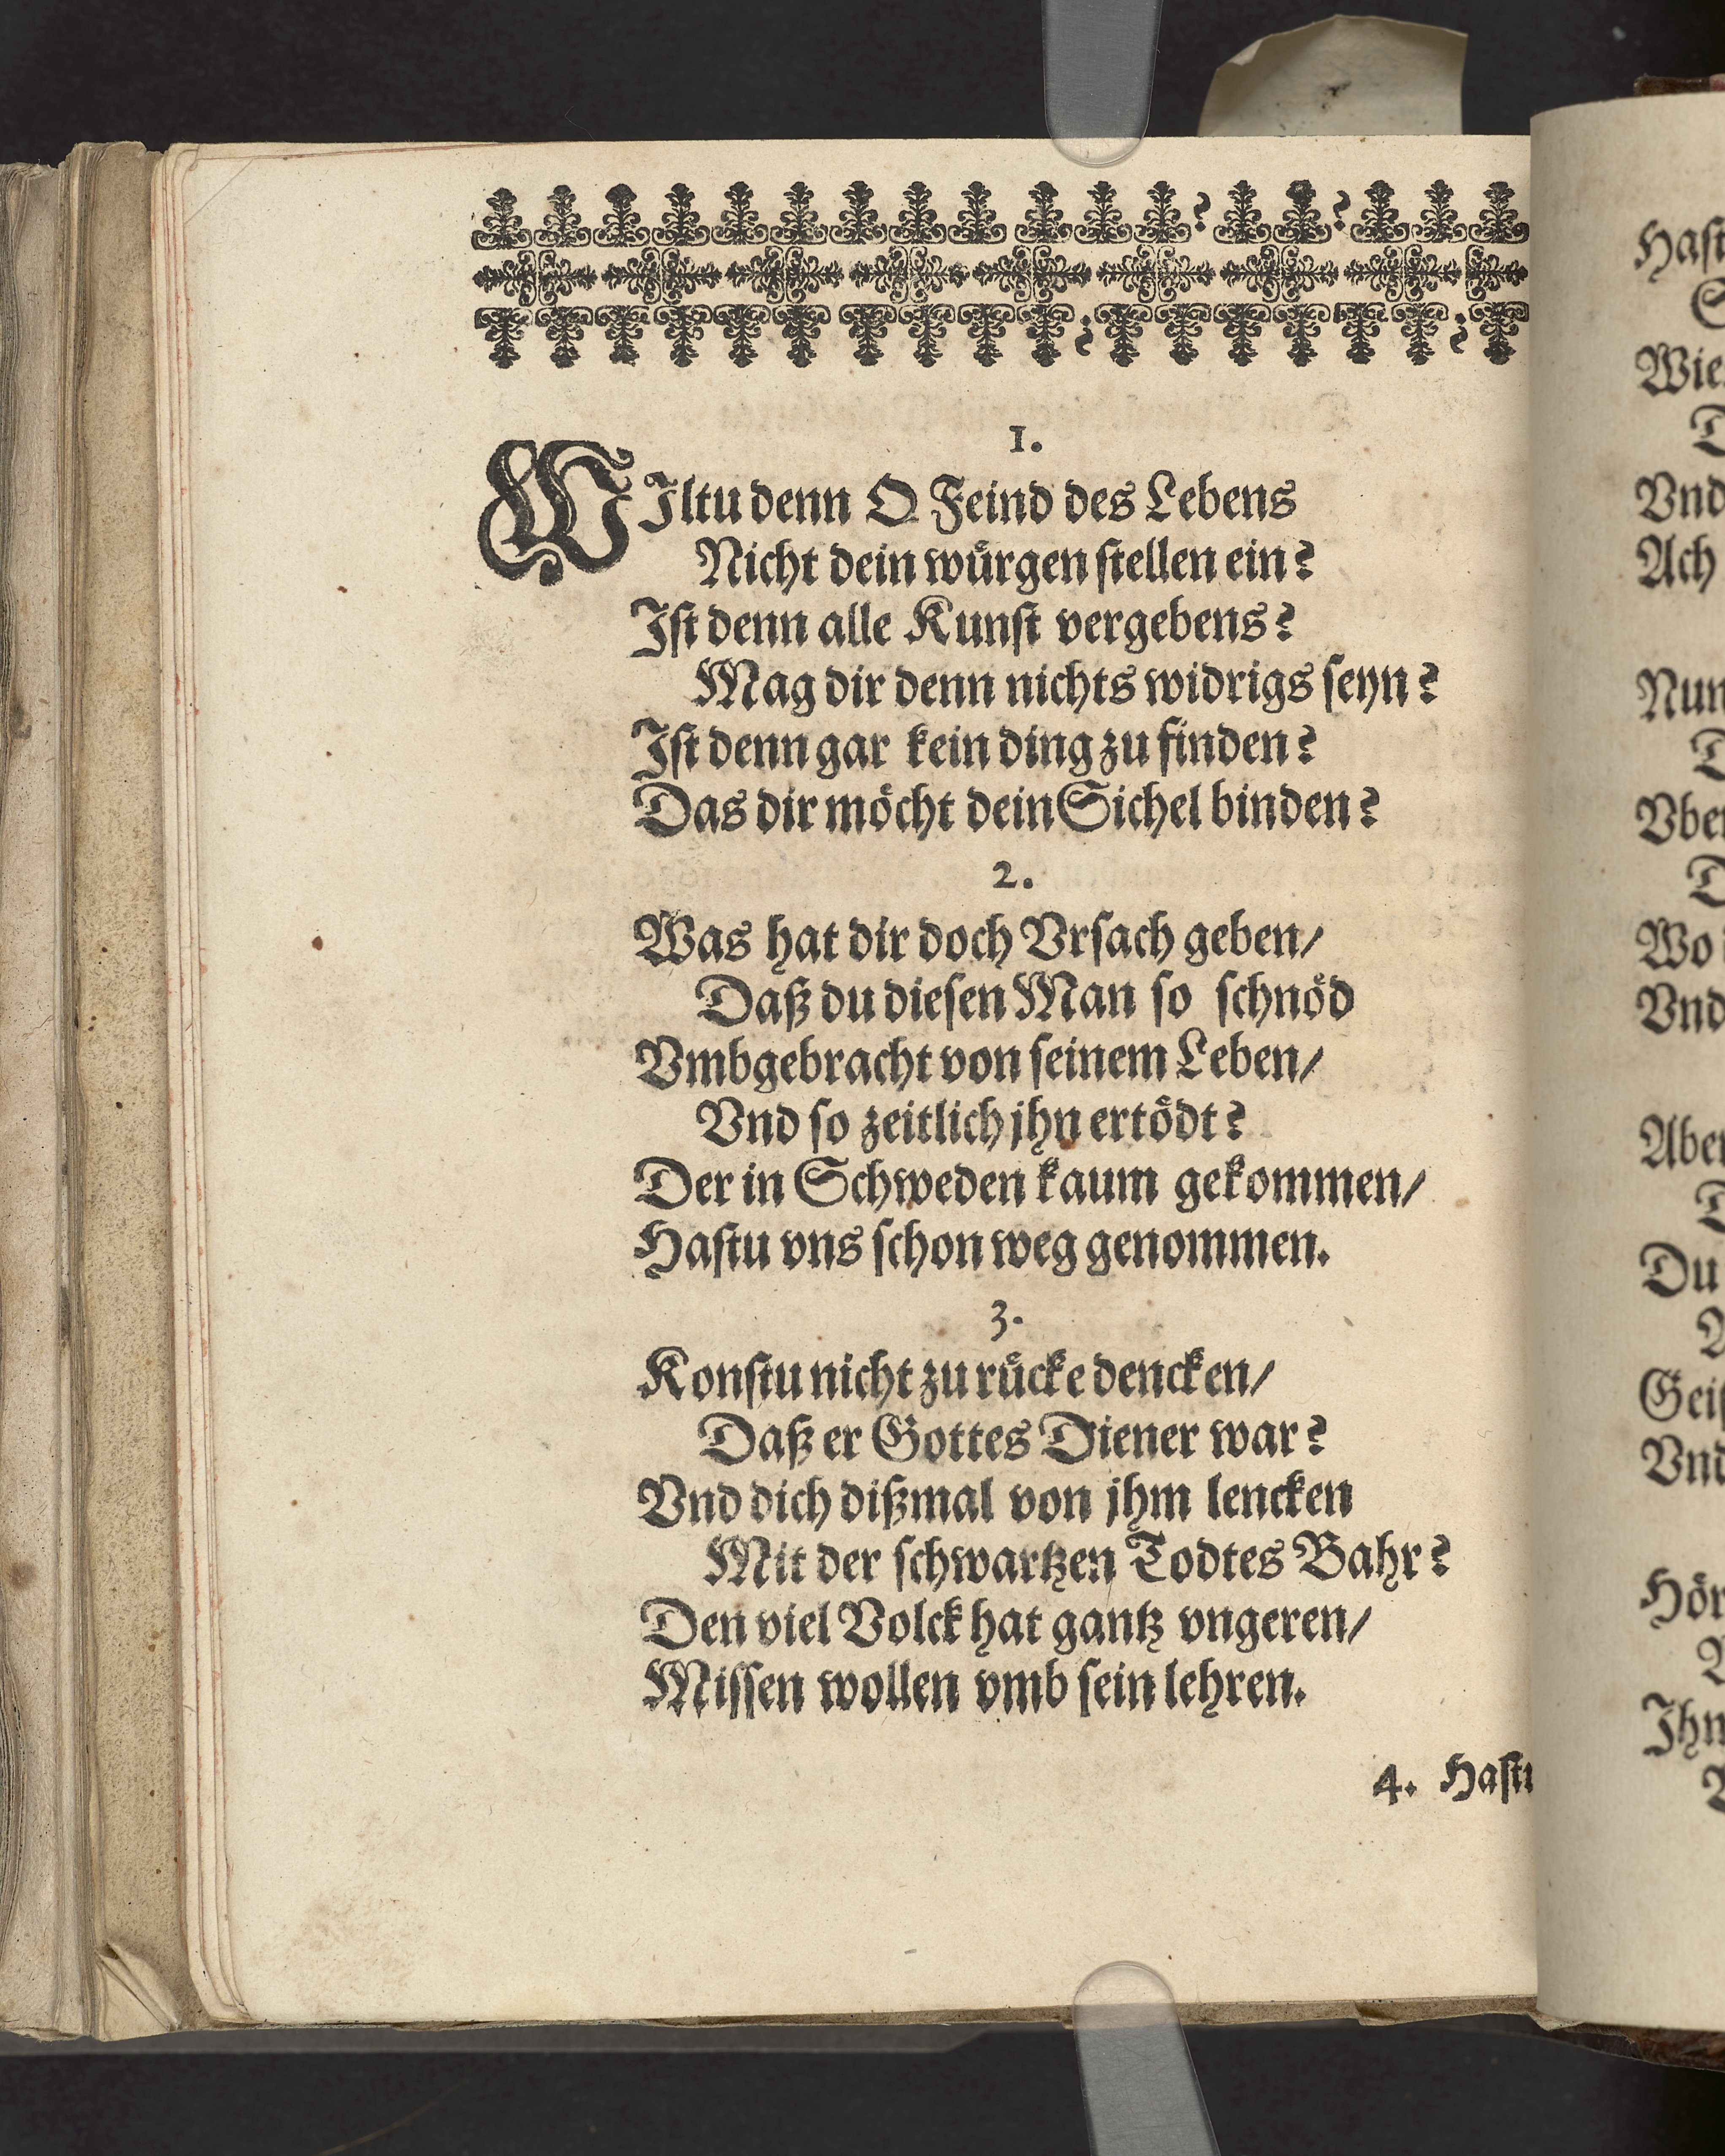 1.
WIltu denn O Feind des Lebens
Nicht dein wuͤrgen ſtellen ein?
Iſt denn alle Kunſt vergebens?
Mag dir denn nichts widrigs ſeyn?
Iſt denn gar kein ding zu finden?
Das dir moͤcht dein Sichel binden?
2.
Was hat dir doch Vrſach geben/
Daß du dieſen Man so ſchnoͤd
Vmbgebracht von ſeinem Leben/
Vnd ſo zeitlich jhn ertoͤdt?
Der in Schweden kaum gekommen/
Haſtu vns ſchon weg genommen.
3.
Konſtu nicht zu ruͤcke dencken/
Daß er Gottes Diener war?
Vnd dich dißmal von jhm lencken
Mit der ſchwartzen Todtes Bahr?
Den viel Volck hat gantz vngeren/
Miſſen wollen vmb ſein lehren.
4. Haſtu
Wie
Vnd
Ach
Nun
Wo
Vnd
Aber
Du
Vnd